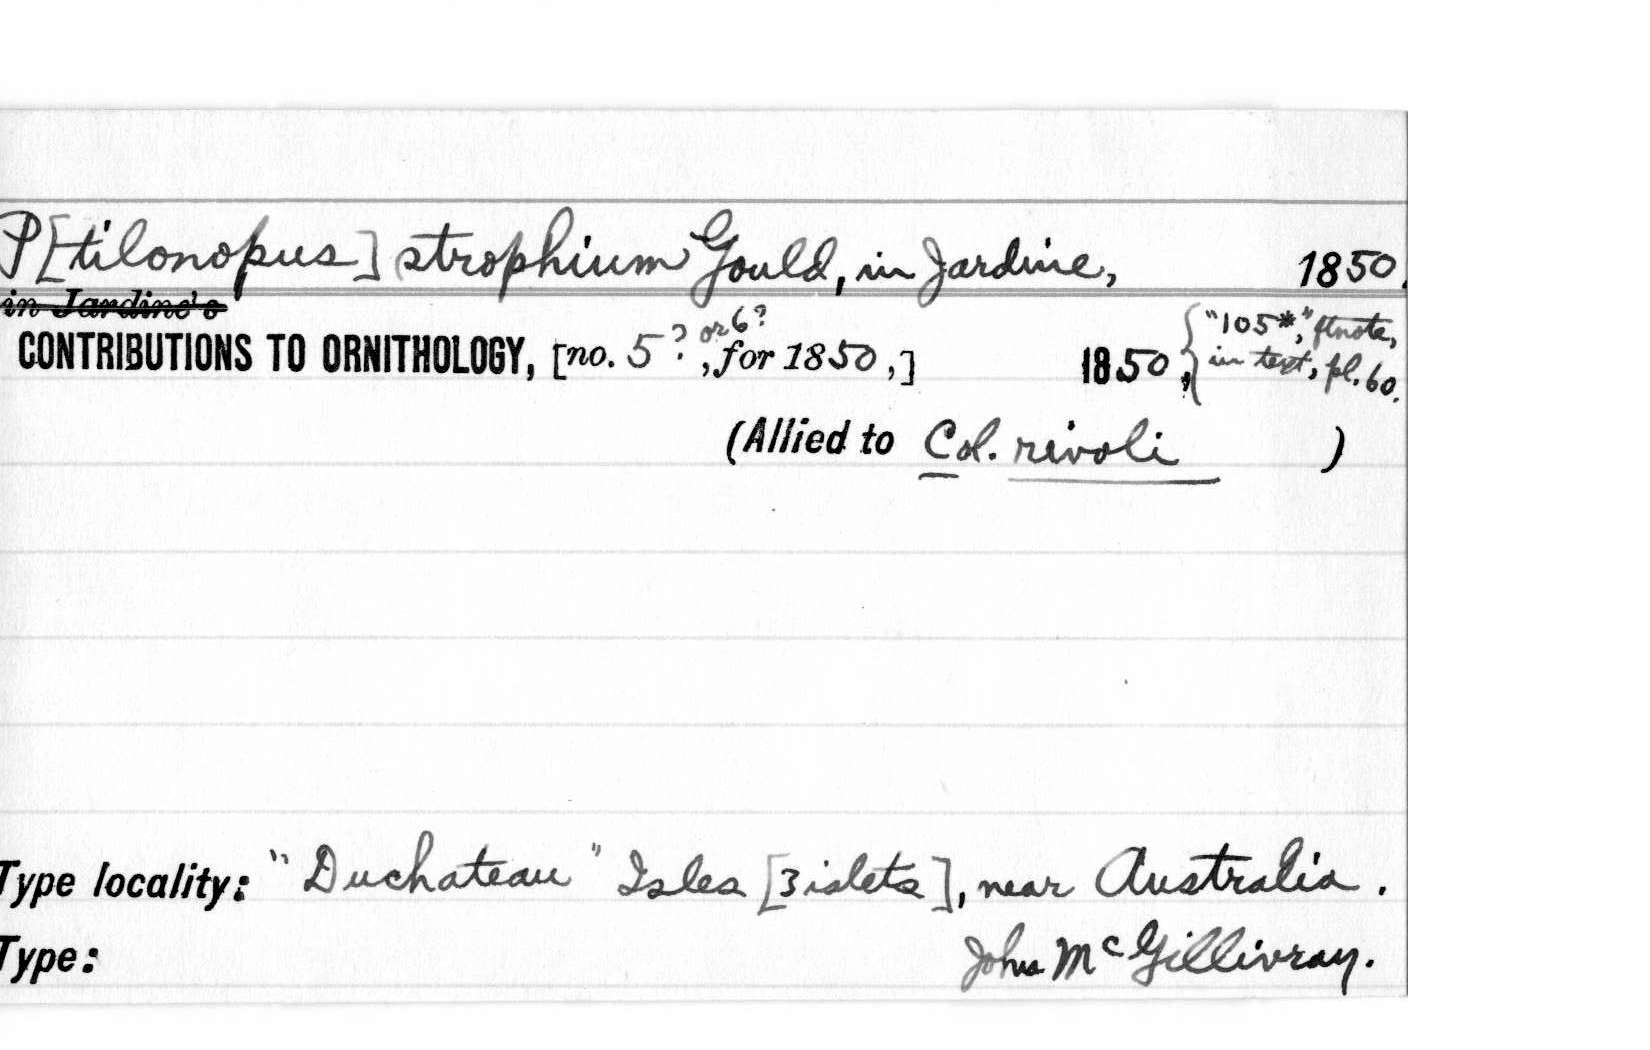 P[tilonopus] strophium Gould, in Jardine, 1850.
in Jardine's
CONTRIBUTIONS TO ORNITHOLOGY, [no. 5?, or 6? for 1850,] 1850, {"105*," ftnote, in text, pl. 60.
(Allied to Col. rivoli )
Type locality: "Duchateau" Isles [3 islets], near Australia.
Type: John McGillivray.